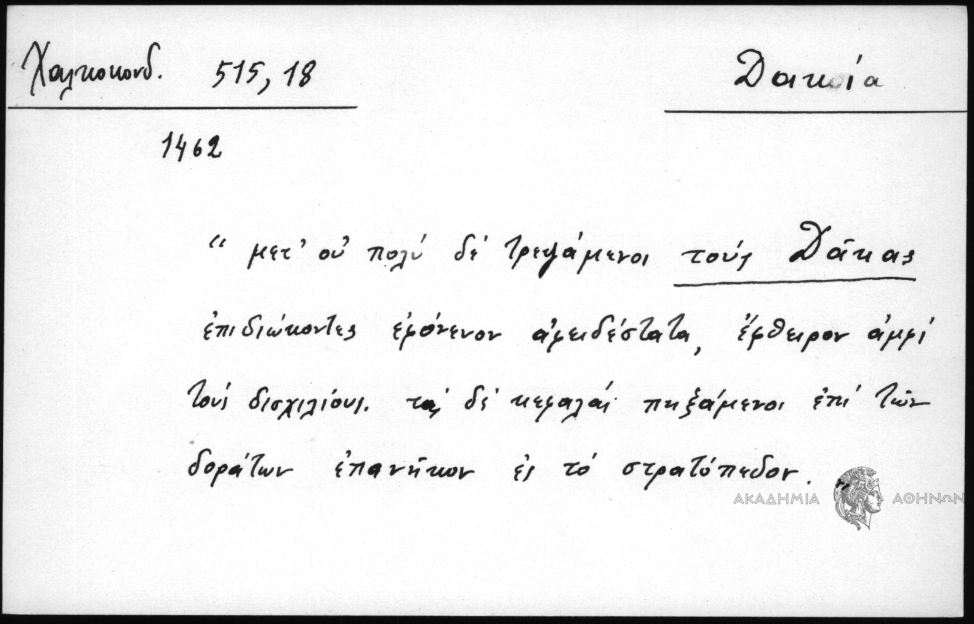 Χαλκοκονδ. 515,18
Δακία
1462
“ μετ' οὐ πολύ δέ τρεψάμενοι τούς Δᾶκας
ἐπιδιώκοντες ἐφόνευον ἀφειδέστατα, ἔφθειρον ἀμφί
τούς δισχιλίους. τάς δέ κεφαλάς πηξάμενοι ἐπί τῶν
δοράτων ἐπανῆκον ἐς τό στρατόπεδον. „
ΑΚΑΔΗΜΙΑ ΑΘΗΝΩΝ